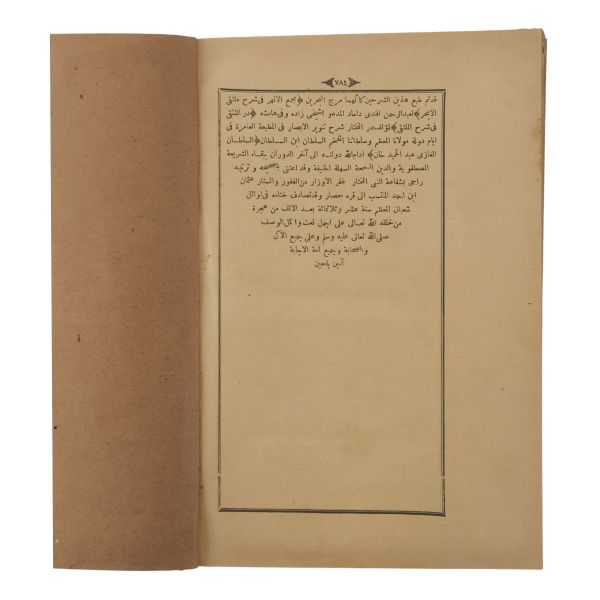 ﴿٧٨٤﴾
قدتم طبع هذين الشرحين كأنهما مرج البحرين ﴿مجمع الانهر فى شرح ملتقى
الابحر﴾ لعبدالرحمن افندى داماد المدعو بشيخى زاده وفى هامشه ﴿در المنتقى
فى شرح الملتقى﴾ لمؤلف در المختار شرح تنوير الابصار فى المطبعة العامرة فى
ايام دولة مولانا المعظم وسلطاننا المفخم السلطان ابن السلطان ﴿السلطان
الغازى عبد الحميد خان﴾ ادام الله دولته الى آخر الدوران ببقاء الشريعة
المصطفوية والدين السمحة السهلة الحنيفة وقد اعتنى بتصحيحه و ترتيبه
راجى بشفاعة النبى المختار غفر الاوزار من الغفور والستار عثمان
ابن احمد المنتسب الى قره حصار وقد تصادف ختامه فى اوائل
شعبان المعظم سنة عشر وثلاثمائة بعد الالف من هجرة
من خلقه الله تعالى على اجمل نعت واكمل الوصف
صلى الله تعالى عليه وسلم وعلى جميع الآل
والصحابة وجميع امة الاجابة
آمين يامعين